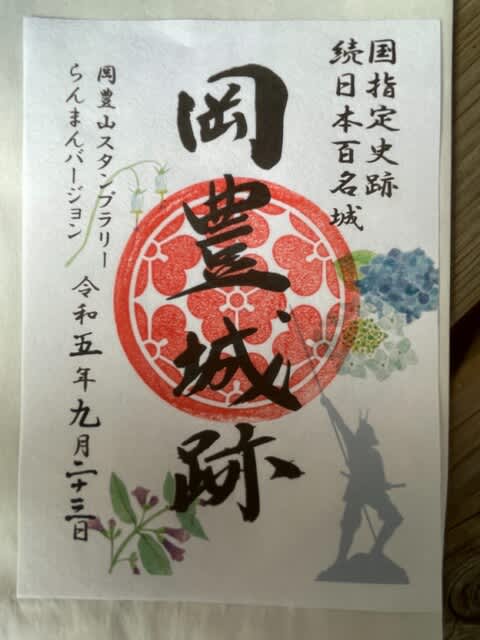 国指定史跡
続日本百名城
岡豊城跡
岡豊山スタンプラリー
らんまんバージョン
令和五年九月二十三日